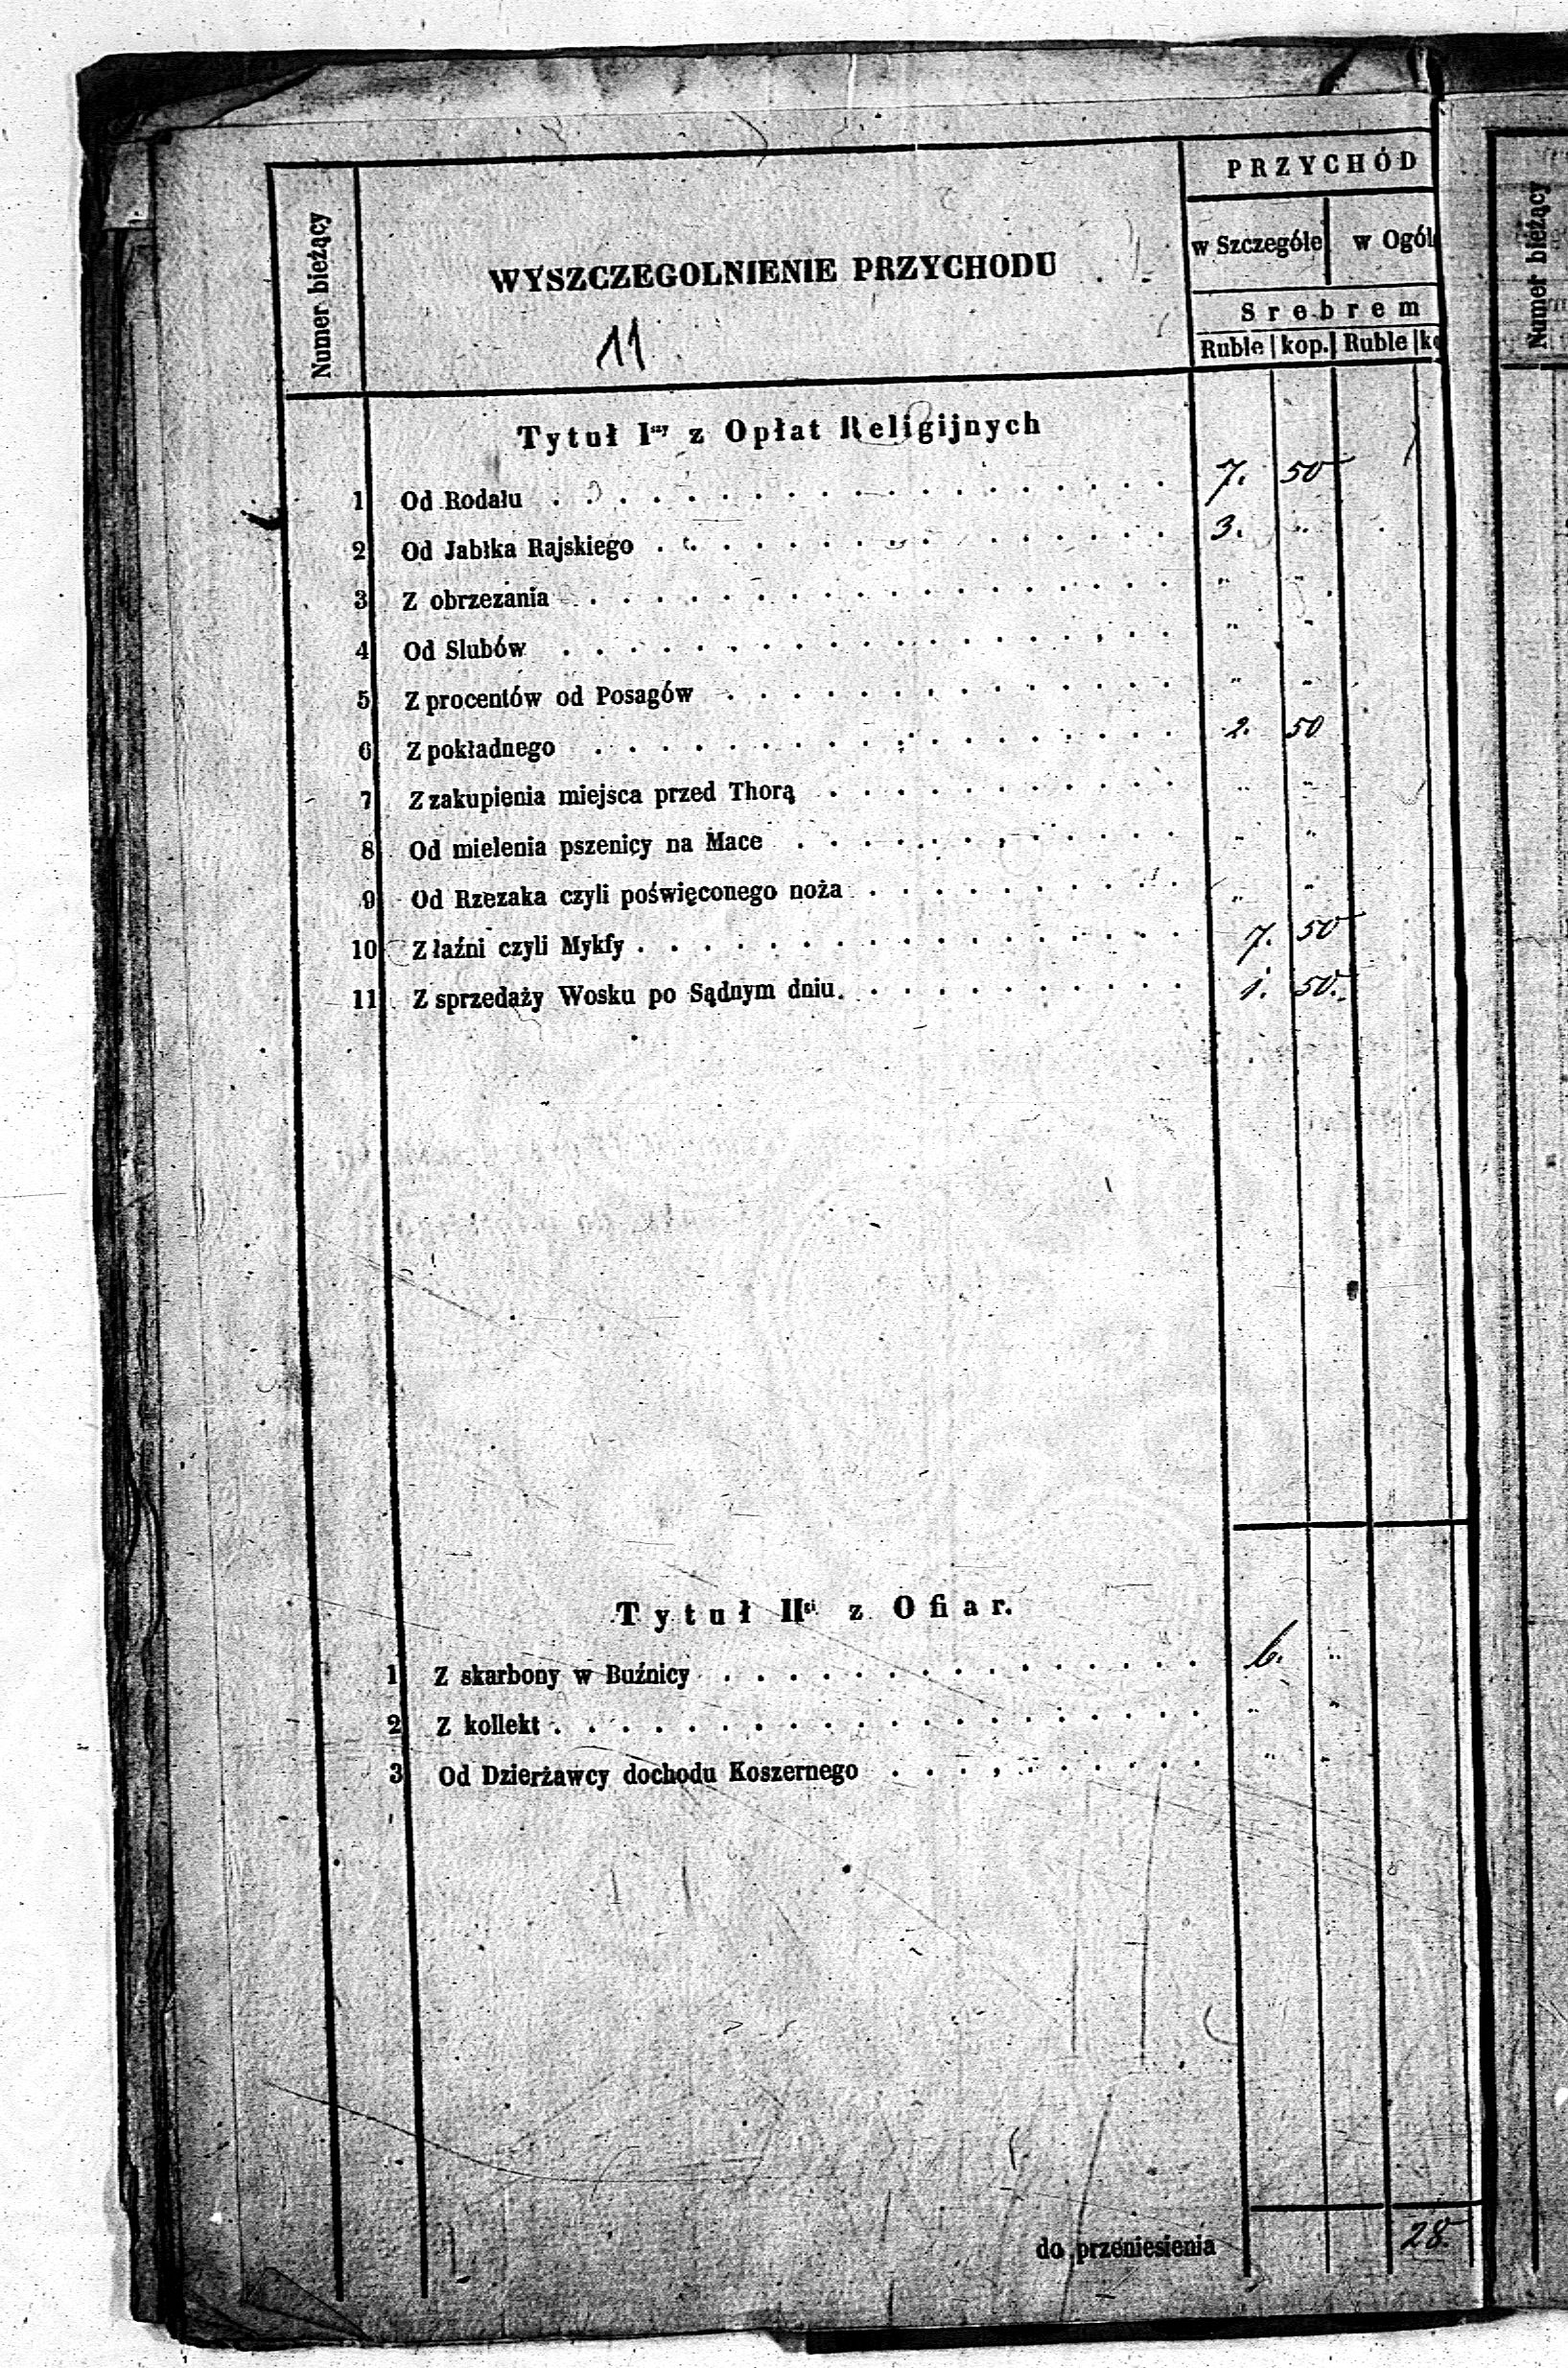 Numer bieżący
WYSZCZEGOLNIENIE PRZYCHODU
11
PRZYCHÓD
w Szczególe w Ogól
Srebrem
Ruble kop. Ruble
Tytuł Iszy z Opłat Religijnych
1 Od Rodału . . . . . 7. 50
2 Od Jabłka Rajskiego . . . . . 3. "
3 Z obrzezania . . . . . " "
4 Od Slubów . . . . . " "
5 Z procentów od Posagów . . . . . " "
6 Z pokładnego . . . . . 2. 50
7 Z zakupienia miejsca przed Thorą . . . . . " "
8 Od mielenia pszenicy na Mace . . . . . " "
9 Od Rzezaka czyli poświęconego noża . . . . . " "
10 Z łaźni czyli Mykfy . . . . . 7. 50
11 Z sprzedaży Wosku po Sądnym dniu . . . . . 1. 50.
Tytuł IIgi z Ofiar.
1 Z skarbony w Buźnicy . . . . . 6. "
2 Z kollekt . . . . . " "
3 Od Dzierżawcy dochodu Koszernego . . . . . " "
do przeniesienia 28
Numer bieżący